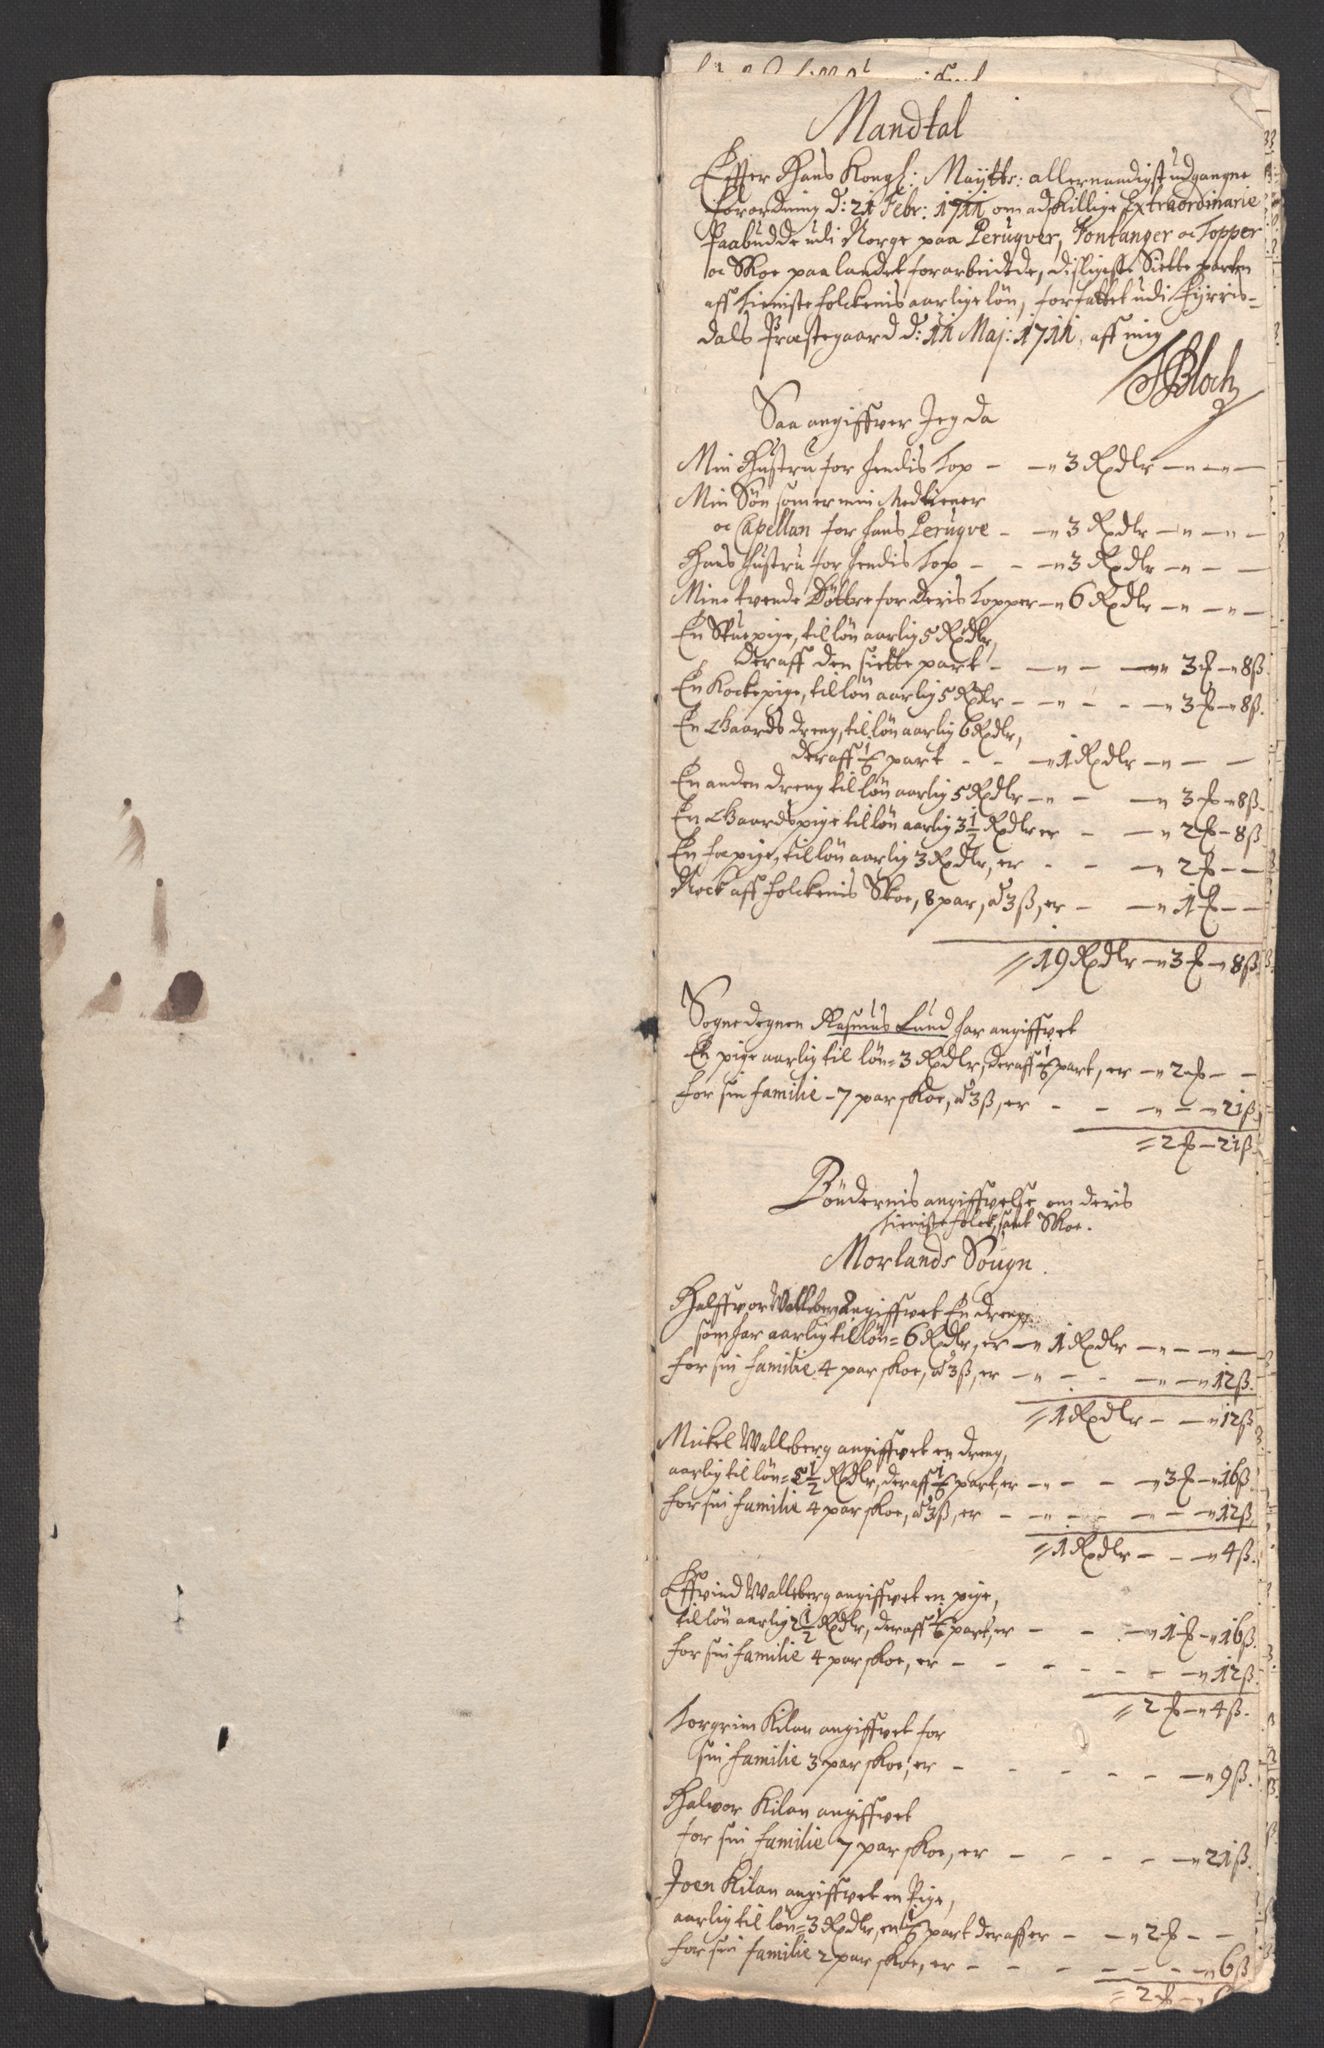 Mandtal
Effter Hans Kongl: Maytts: allernaadigst udgangne
forordning d: 21 Febr: 1711 om adskillige Extraordinarie
Paabudde udi Norge paa Peruqver, Fontanger oc Topper
oc Skoe paa landet forarbeidede, disligeste Siette parten
aff tieniste folckenis aarlige løn, forfattet udi Fyrris-
dals Præstegaard d: 11 Maj: 1711, aff mig
Bloch
Saa angiffver Jeg da
Min Hustru for hendis Top - -" 3 Rxdlr -"-"-
Min Søn som er min Medtiener
oc Capellan for hans Peruqve - -" 3 Rxdlr -"-"-
Hans hustru for hendis Top - - -" 3 Rxdlr -"- -
Mine tvende Døttre for deris Topper -" 6 Rxdlr -"-"-
En Stuepige, til løn aarlig 5 Rxdlr,
deraff den siette part - -"- -" 3 ₰ -" 8 ß.
En Kockepige, til løn aarlig 5 Rxdlr - -"- - -" 3 ₰ -" 8 ß.
En Gaards dreng, til løn aarlig 6 Rxdlr,
deraff 1/6 part - - -" 1 Rxdlr -"- -
En anden dreng til løn aarlig 5 Rxdlr -"- -" 3 ₰ -" 8 ß.
En Gaardspige til løn aarlig 3 1/2 Rxdlr er - -" 2 ₰ - 8 ß
En fæpige, til løn aarlig 3 Rxdlr, er - - -" 2 ₰ - -
Nock aff folckenis Skoe, 8 par, à 3 ß, er - -" 1 ₰ - -
= 19 Rxdlr -" 3 ₰ -" 8 ß.
Sognedegnen Rasmus Lund har angiffvet
En pige aarlig til løn = 3 Rxdlr, deraff 1/6 part, er -" 2 ₰ - -
for sin familie - 7 par skoe, à 3 ß, er - - -"- -" 21 ß.
= 2 ₰ - 21 ß.
Böndernis angiffvelse om deris
tieniste folck, samt Skoe.
Morlands Sougn.
Halffvor Walleberg Angiffvet En dreng,
som har aarlig til løn = 6 Rxdlr, er -" 1 Rxdlr -"-"-
for sin familie 4 par skoe, à 3 ß, er -"- - -"-" 12 ß.
= 1 Rxdlr - -" 12 ß
Mickel Walleberg angiffvet en dreng,
aarlig til løn = 5 1/2 Rxdlr, deraff 1/6 part, er -"- - -" 3 ₰ -" 16 ß.
for sin familie 4 par skoe, à 3 ß, er - -"- - -"-" 12 ß.
= 1 Rxdlr - -" 4 ß.
Effvind Walleberg angiffvet en pige,
til løn aarlig 2 1/2 Rxdlr, deraff 1/6 part, er - - -" 1 ₰ -" 16 ß.
for sin familie 4 par skoe, er - - - - - -" 12 ß.
= 2 ₰ -" 4 ß.
Torgrim Kilan angiffvet for
sin familie 3 par skoe, er - - - - - -" 9 ß.
Halvor Kilan angiffvet
for sin familie 7 par skoe, er - - - - -" 21 ß.
Joen Kilan angiffvet en Pige,
aarlig til løn = 3 Rxdlr, en 1/6 part deraff er - -" 2 ₰ - -
for sin familie 2 par skoe, er - - - - - -" 6 ß
= 2 ₰ -" 6